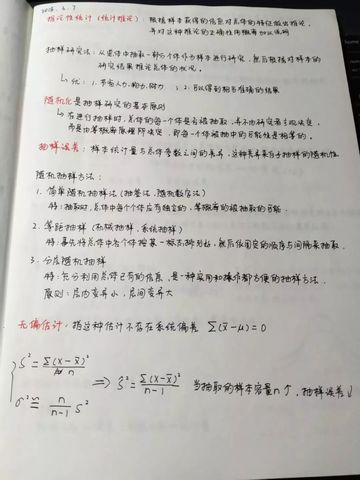 2018.6.7
推论性统计（统计推论）：根据样本获得的信息对总体的特征做出推论，
并对这种推论的正确性用概率加以说明
抽样研究法：从总体中抽取一部分个体作为样本进行研究，然后根据对样本的
研究结果推论总体的状况。
↳优：1.节省人力、物力、财力；2.可以得到相当准确的结果
随机化是抽样研究的基本原则
↳在进行抽样时，总体的每一个体是否被抽取，并不由研究者主观决定，
而是由等概率原理所决定，即每一个体被抽中的可能性是相等的。
抽样误差：样本统计量与总体参数之间的差异，这种差异来自于抽样的随机性
随机抽样方法：
1. 简单随机抽样法（抽签法、随机数字法）
特：抽取时，总体中每个个体应有独立的，等概率的被抽取的可能
2. 等距抽样（机械抽样，系统抽样）
特：事先将总体中各个体按某一标志排列好，然后依固定的顺序与间隔来抽取.
3. 分层随机抽样
特：充分利用总体已有的信息，是一种实用和操作都方便的抽样方法.
原则：层内变异小，层间变异大
无偏估计：指这种估计不存在系统偏差 Σ(x̄-μ)=0
S²=Σ(X-X̄)²/n
σ²≌n/(n-1) S²
⇒ Ŝ²=Σ(X-X̄)²/(n-1) 当抽取的样本容量n↑，抽样误差↓